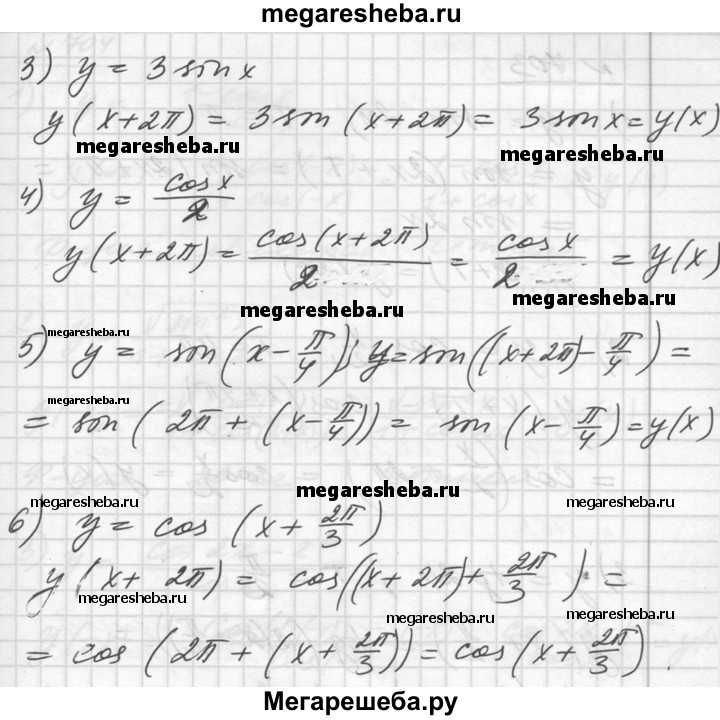 megaresheba.ru
3) y = 3 sin x
y(x+2π) = 3 sin (x+2π) = 3 sin x = y(x)
megaresheba.ru megaresheba.ru
4) y = cos x / 2
y(x+2π) = cos(x+2π) / 2 = cos x / 2 = y(x)
megaresheba.ru megaresheba.ru
megaresheba.ru megaresheba.ru
5) y = sin(x - π/4); y = sin((x+2π) - π/4) =
megaresheba.ru
= sin(2π + (x - π/4)) = sin(x - π/4) = y(x)
megaresheba.ru megaresheba.ru megaresheba.ru
6) y = cos (x + 2π/3)
y(x + 2π) = cos((x + 2π) + 2π/3) =
megaresheba.ru megaresheba.ru megaresheba.ru
= cos(2π + (x + 2π/3)) = cos(x + 2π/3).
Мегарешеба.ру